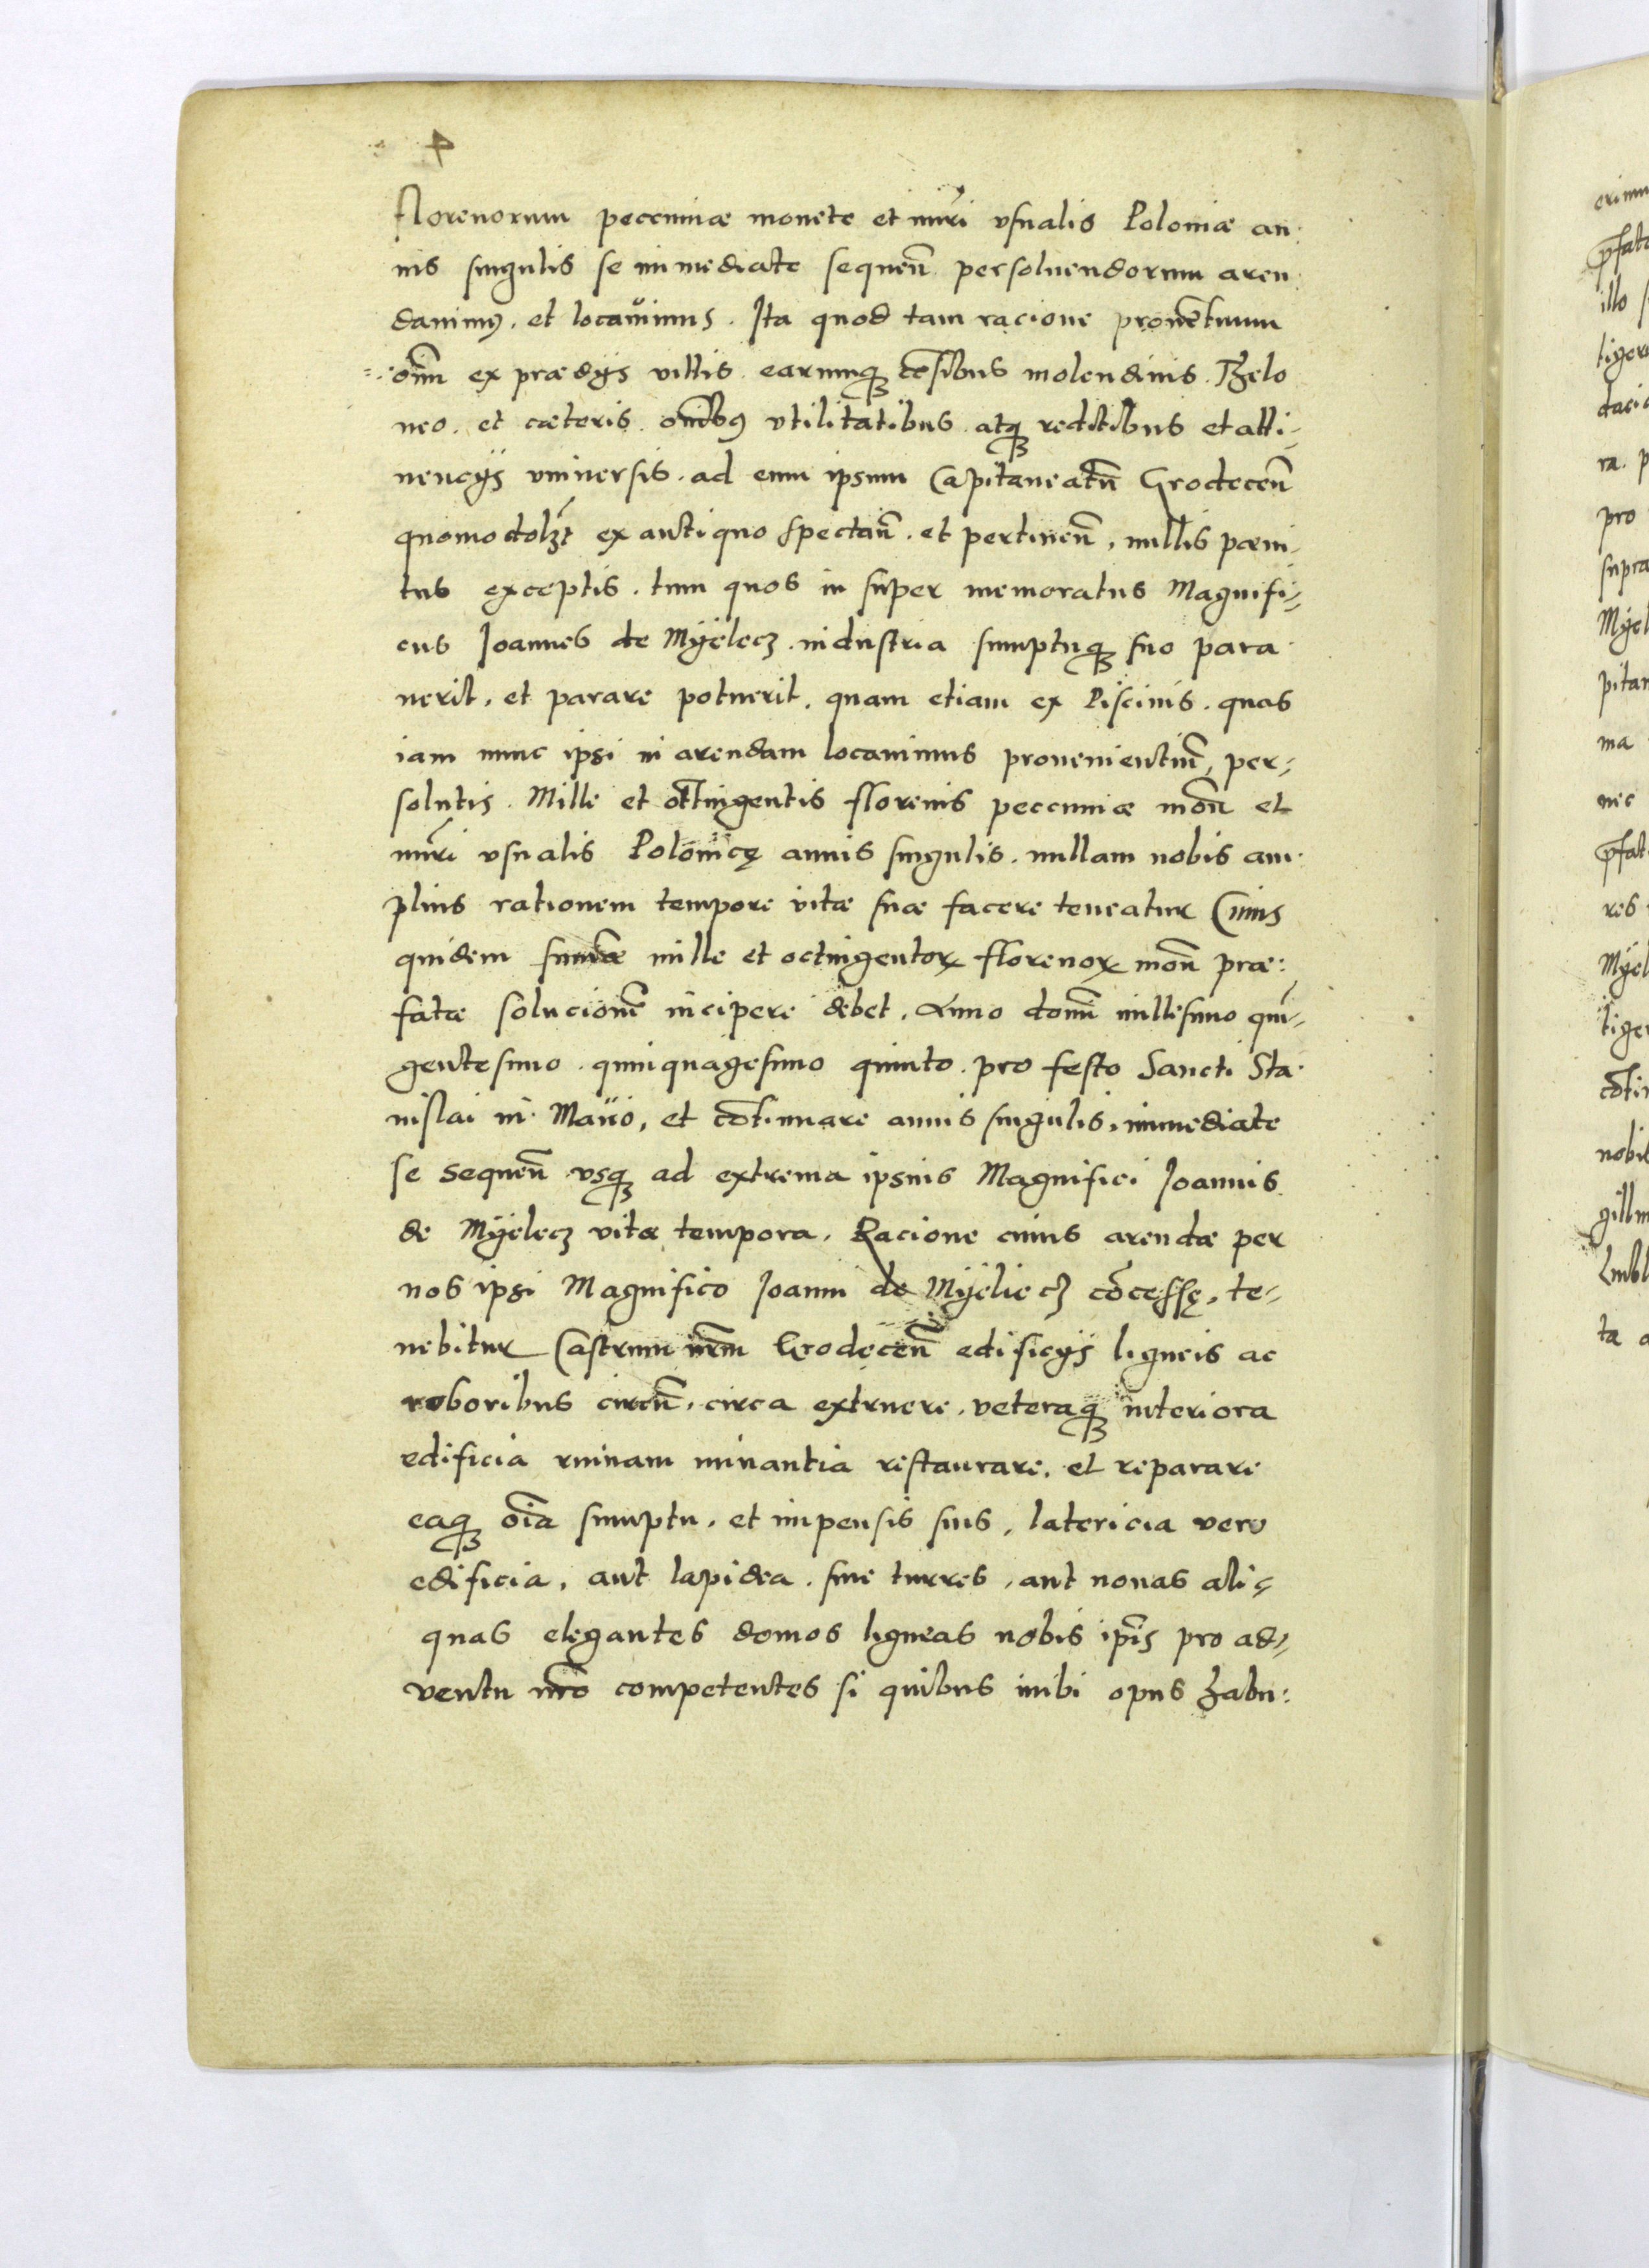 4
florenorum peccuniæ monete et nũri vsualis Poloniæ an
nis singulis se immediate sequeñ persoluendorum aren
dauimꝰ. et locauimus. Ita quod tam racione prouẽtuum
oĩm ex prædijs villis earumqꝫ cẽsibus molendinis. Tzelo
neo. et cæteris. oñibꝰ vtilitatibus atqꝫ reditibus et atti⸗
nencijs vniuersis. ad eum ipsum Capitaneatũ Grodeceñ
quomodolꝫt ex antiquo spectañ. et pertineñ, nullis pœni⸗
tus exceptis. tum quos in super memoratus Magnifi⸗
cus Joannes de Mÿelecz industria sumptuqꝫ suo para
uerit, et parare potuerit, quam etiam ex Piscinis. quas
iam nunc ipsi in arendam locauimus prouenientiũ, per⸗
solutis. Mille et octingentis florenis peccuniæ moñ et
nũri vsualis Polonicę annis singulis. nullam nobis am
plius rationem tempore vitæ suæ facere teneatur Cuius
quidem sum̃æ mille et octingentoꝝ florenoꝝ moñ præ:
fatæ solucionẽ incipere debet, Anno domĩ millesimo quĩ⸗
gentesimo. quinquagesimo quinto. pro festo Sancti Sta
nislai in Maÿo, et cõtinuare annis singulis, immediate
se sequeñ vsqꝫ ad extrema ipsius Magnifici Joannis
de Mÿelecz vitæ tempora. Racione cuius arendæ per
nos ipsi Magnifico Joanni de Mÿeliecz cõcessę, te⸗
nebitur Castrum nr̃m Grodeceñ edificijs ligneis ac
roboribus circũ, circa extruere. veteraqꝫ interiora
edificia ruinam minantia restaurare, et reparare
eaqꝫ oĩa sumptu. et impensis suis, latericia vero
edificia, aut lapidea. siue turres, aut nouas ali⸗
quas elegantes domos ligneas nobis ip̃is pro ad⸗
ventu nr̃o competentes si quibus inibi opus habu: